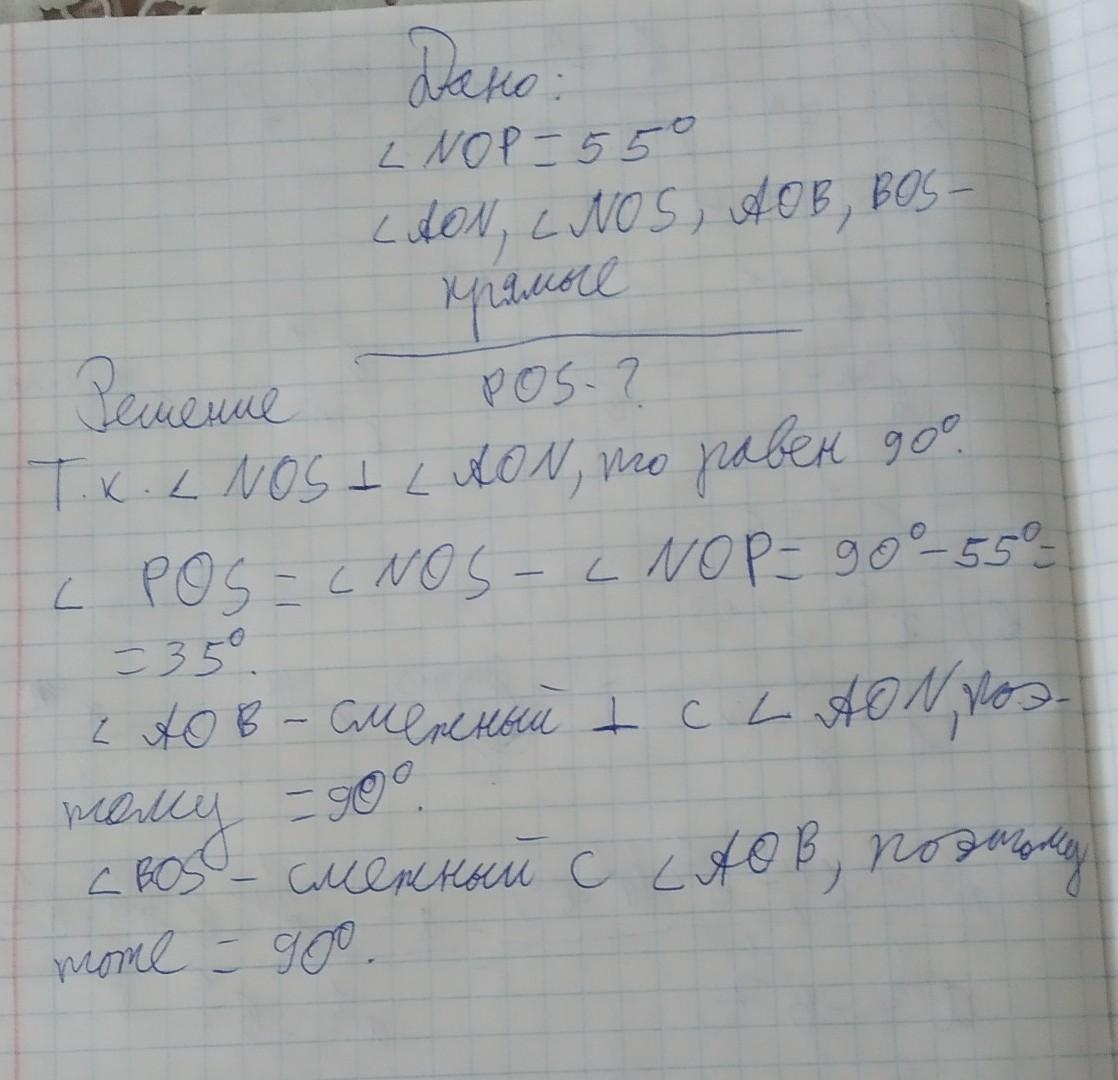 Дано:
∠ NOP = 55°
∠ AON, ∠ NOS, AOB, BOS –
прямые
POS - ?
Решение
Т.к. ∠ NOS ⊥ ∠ AON, то равен 90°.
∠ POS = ∠ NOS – ∠ NOP = 90° – 55° =
= 35°.
∠ AOB – смежный ⊥ с ∠ AON, поэ-
тому = 90°.
∠ BOS – смежный с ∠ AOB, поэтому
тоже = 90°.